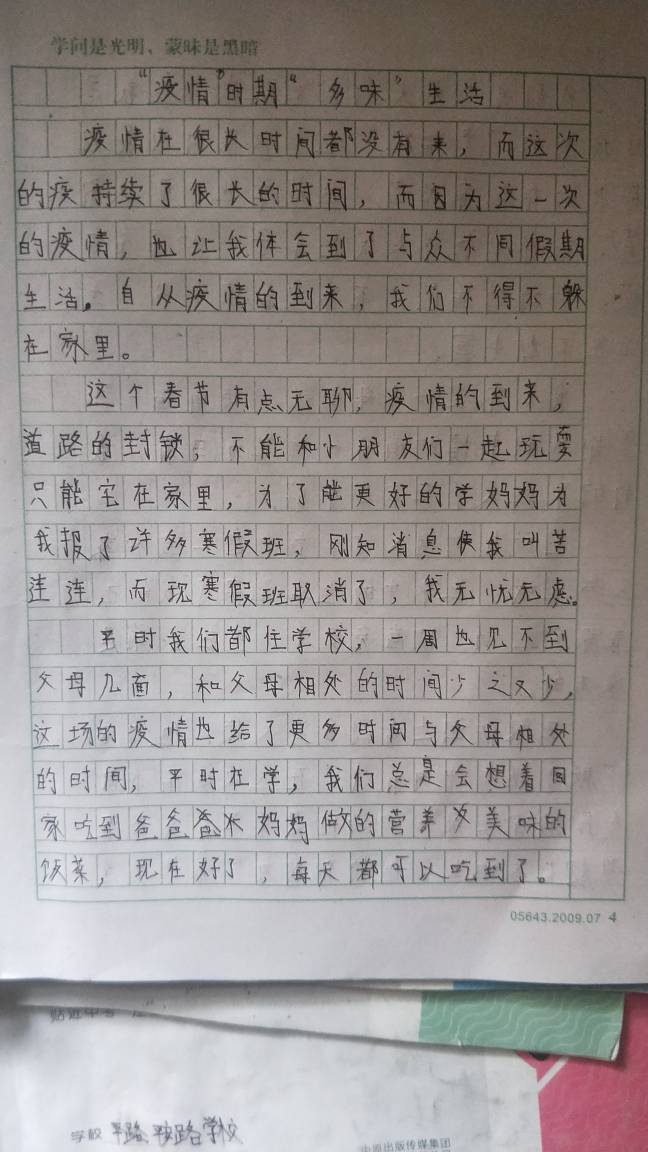 学问是光明、蒙昧是黑暗
“疫情”时期“多味”生活
疫情在很长时间都没有来，而这次
的疫持续了很长的时间，而因为这一次
的疫情，也让我体会到了与众不同假期
生活。自从疫情的到来，我们不得不躲
在家里。
这个春节有点无聊，疫情的到来，
道路的封锁，不能和小朋友们一起玩耍
只能宅在家里，为了能更好的学妈妈为
我报了许多寒假班，刚知消息使我叫苦
连连，而现寒假班取消了，我无忧无虑。
平时我们都住学校，一周也见不到
父母几面，和父母相处的时间少之又少，
这场的疫情也给了更多时间与父母相处
的时间，平时在学，我们总是会想着回
家吃到爸爸妈妈做的营养又美味的
饭菜，现在好了，每天都可以吃到了。
05643.2009.07 4
贴近中考
学校 平路
学校
中原出版传媒集团